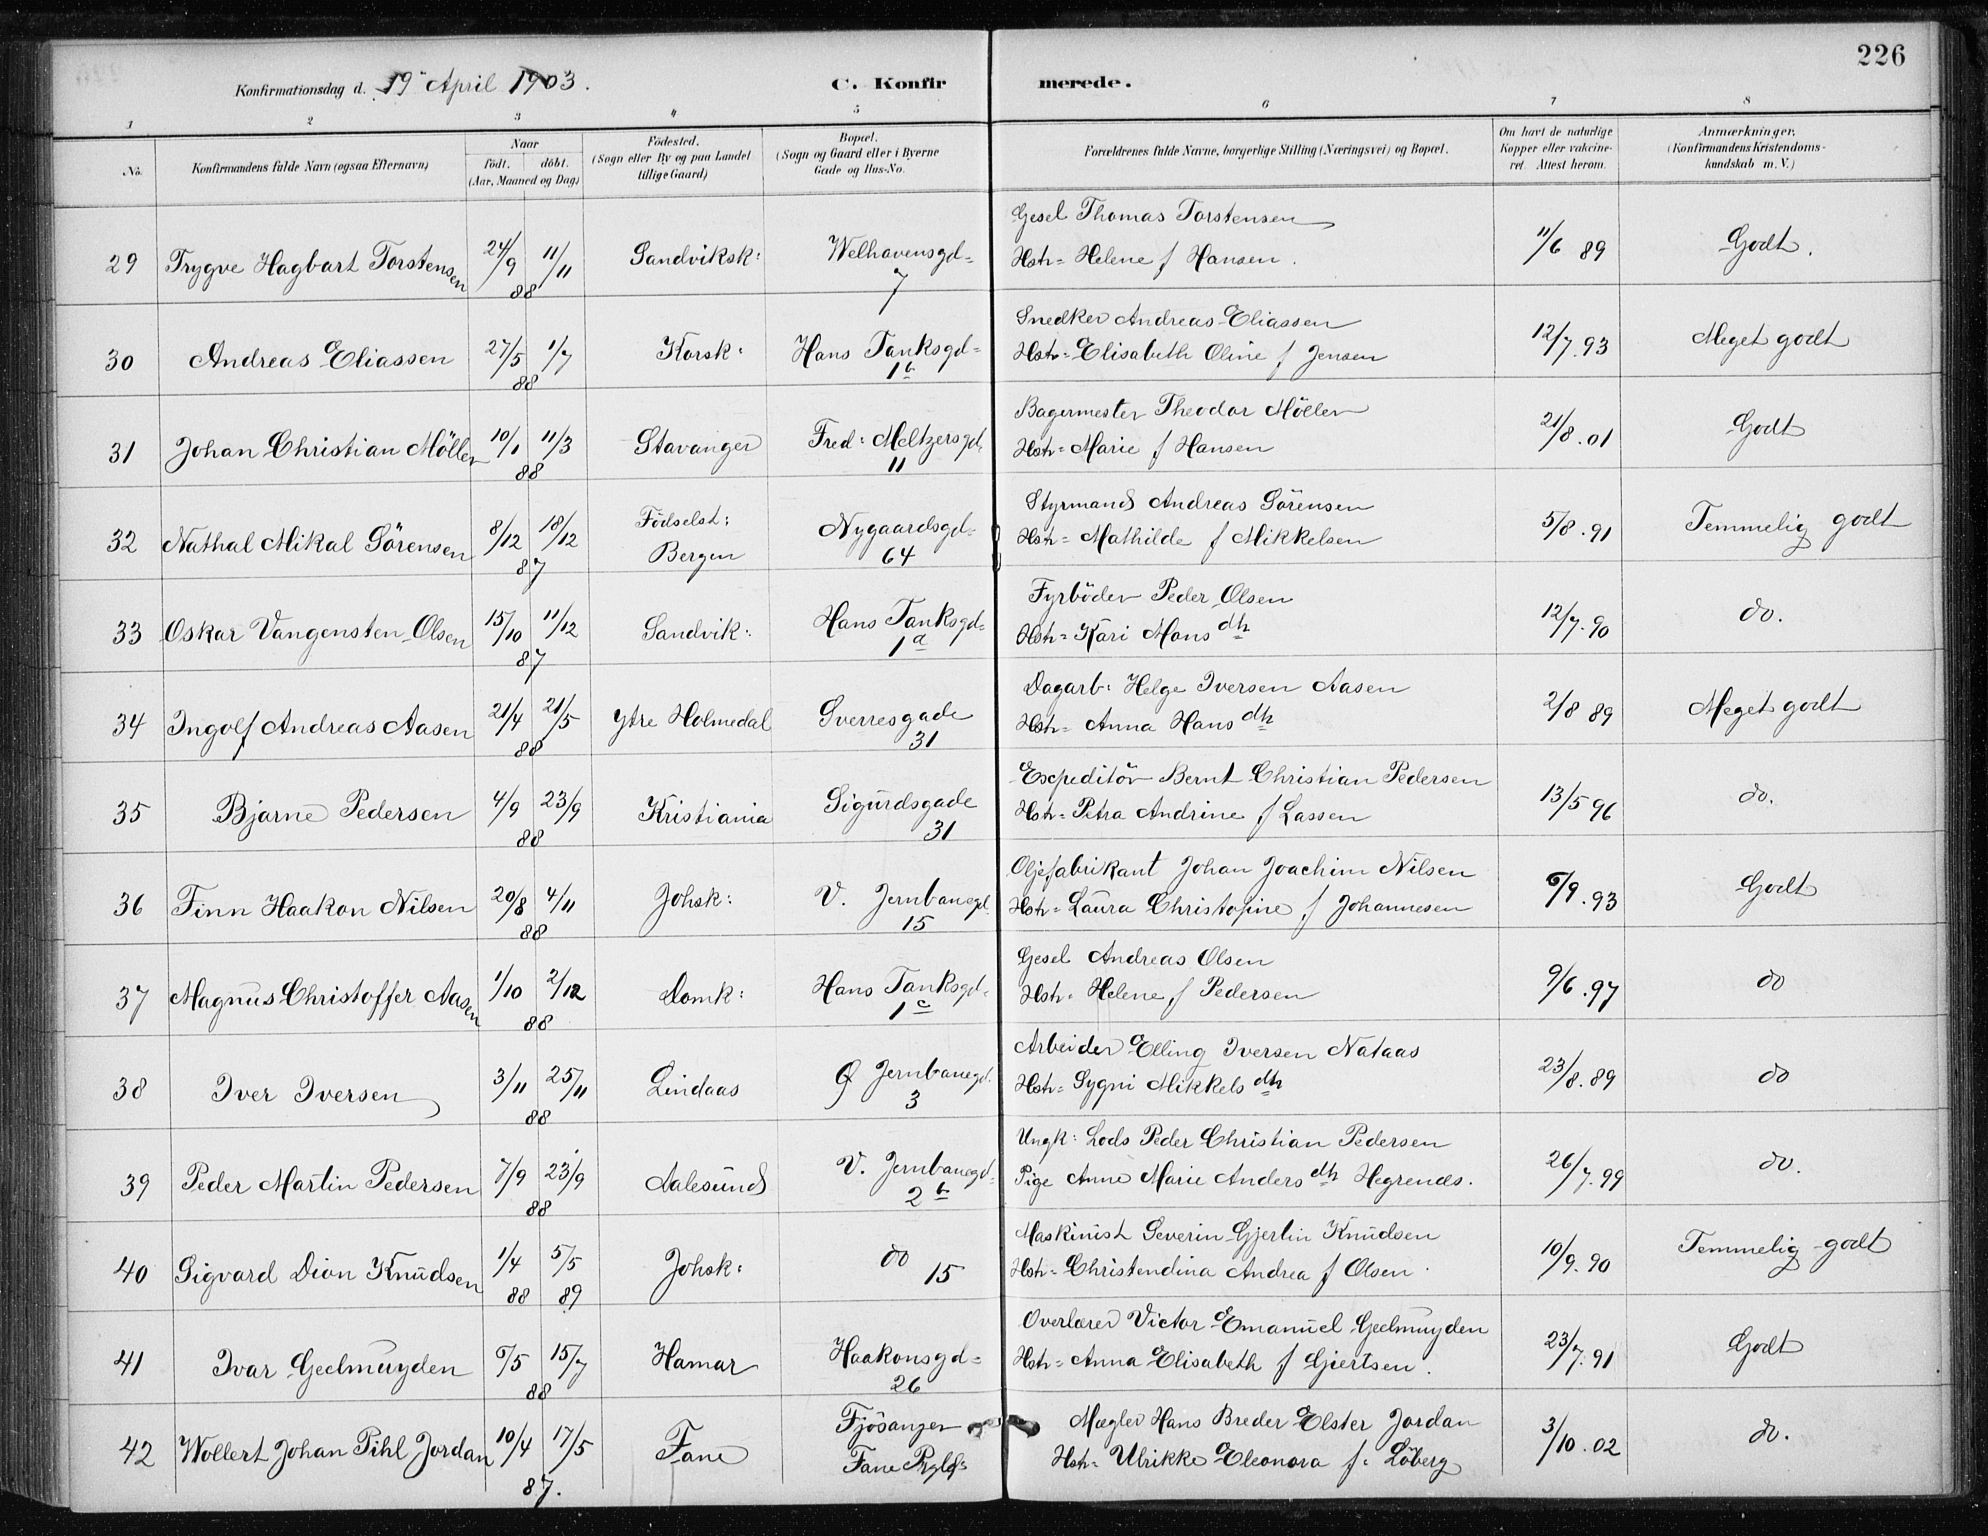 226
Konfirmationsdag d. 19 April 1903.
C. Konfirmerede.
1 2 3 4 5 6 7 8
No.
Konfirmandens fulde Navn (ogsaa Efternavn)
Naar
födt. döbt.
(Aar, Maaned og Dag)
Födested.
(Sogn eller By og paa Landet
tillige Gaard)
Bopæl.
(Sogn og Gaard eller i Byerne
Gade og Hus-No.
Forældrenes fulde Navne, borgerlige Stilling (Næringsvei) og Bopæl.
Om havt de naturlige
Kopper eller vakcine-
ret. Attest herom.
Anmærkninger,
(Konfirmandens Kristendoms-
kundskab m. V.)
29 Trygve Hagbart Torstensen 24/9 11/11 88 Sandviksk: Welhavensgd= 7
Gesel Thomas Torstensen
Hstr= Helene f Hansen. 11/6 89 Godt.
30 Andreas Eliassen 27/5 1/7 88 Korsk: Hans Tanksgd= 1b
Snedker Andreas Eliassen
Hstr= Elisabeth Oline f Jensen 12/7.93 Meget godt
31 Johan Christian Möller 10/1 11/3 88 Stavanger Fred: Meltzersgd= 11
Bagermester Theodor Möller
Hstr= Marie f Hansen 21/8.01 Godt
32 Nathal Mikal Sörensen 8/12 18/12 87 Födselst: Bergen Nygaardsgd= 64
Styrmand Andreas Sörensen
Hstr= Mathilde f Mikkelsen 5/8.91 Temmelig godt
33 Oskar Vangensten Olsen 15/10 11/12 87 Sandvik: Hans Tanksgd= 1a
Fyrböder Peder Olsen
Hstr= Kari Mons dtr 12/7.90 do.
34 Ingolf Andreas Aasen 21/4 21/5 88 Ytre Holmedal Sverresgade 31
Dagarb: Helge Iversen Aasen
Hstr= Anna Hans dtr 2/8 89 Meget godt
35 Bjarne Pedersen 4/9 23/9 88 Kristiania Sigurdsgade 31
Expeditör Bernt Christian Pedersen
Hstr= Petra Andrine f Lassen 13/5 96 do.
36 Finn Haakon Nilsen 20/8 4/11 88 Johsk: V. Jernbanegd. 15
Oljefabrikant Johan Joachim Nilsen
Hstr= Laura Christofine f Johannesen 6/9.93 Godt
37 Magnus Christoffer Aasen 1/10 2/12 88 Domk: Hans Tanksgd= 1c
Gesel Andreas Olsen
Hstr= Helene f Pedersen 9/6.97 do
38 Iver Iversen 3/11 25/11 88 Lindaas Ø Jernbanegd. 3
Arbeider Elling Iversen Nataas
Hstr= Sygni Mikkels dtr 23/8.89 do
39 Peder Martin Pedersen 7/9 23/9 88 Aalesund V. Jernbanegd= 2b
Ungk: Lods Peder Christian Pedersen
Pige Anne Marie Anders dtr Hegrends. 26/7.99 do.
40 Sigvard Dion Knudsen 1/4 88 5/5 89 Johsk: do 15
Maskinist Severin Gjertin Knudsen
Hstr= Christendina Andrea f Olsen. 10/9.90 Temmelig godt
41 Ivar Geelmuyden 6/5 15/7 88 Hamar Haakonsgd= 26
Overlærer Victor Emanuel Geelmuyden
Hstr= Anna Elisabeth f Gjertsen. 23/7.91 Godt
42 Wollert Johan Pihl Jordan 10/4 17/5 87. Fane Fjösanger Fane Prgld=
Mægler Hans Breder Elster Jordan
Hstr= Ulrikke Eleonora f. Löberg 3/10.02 do.